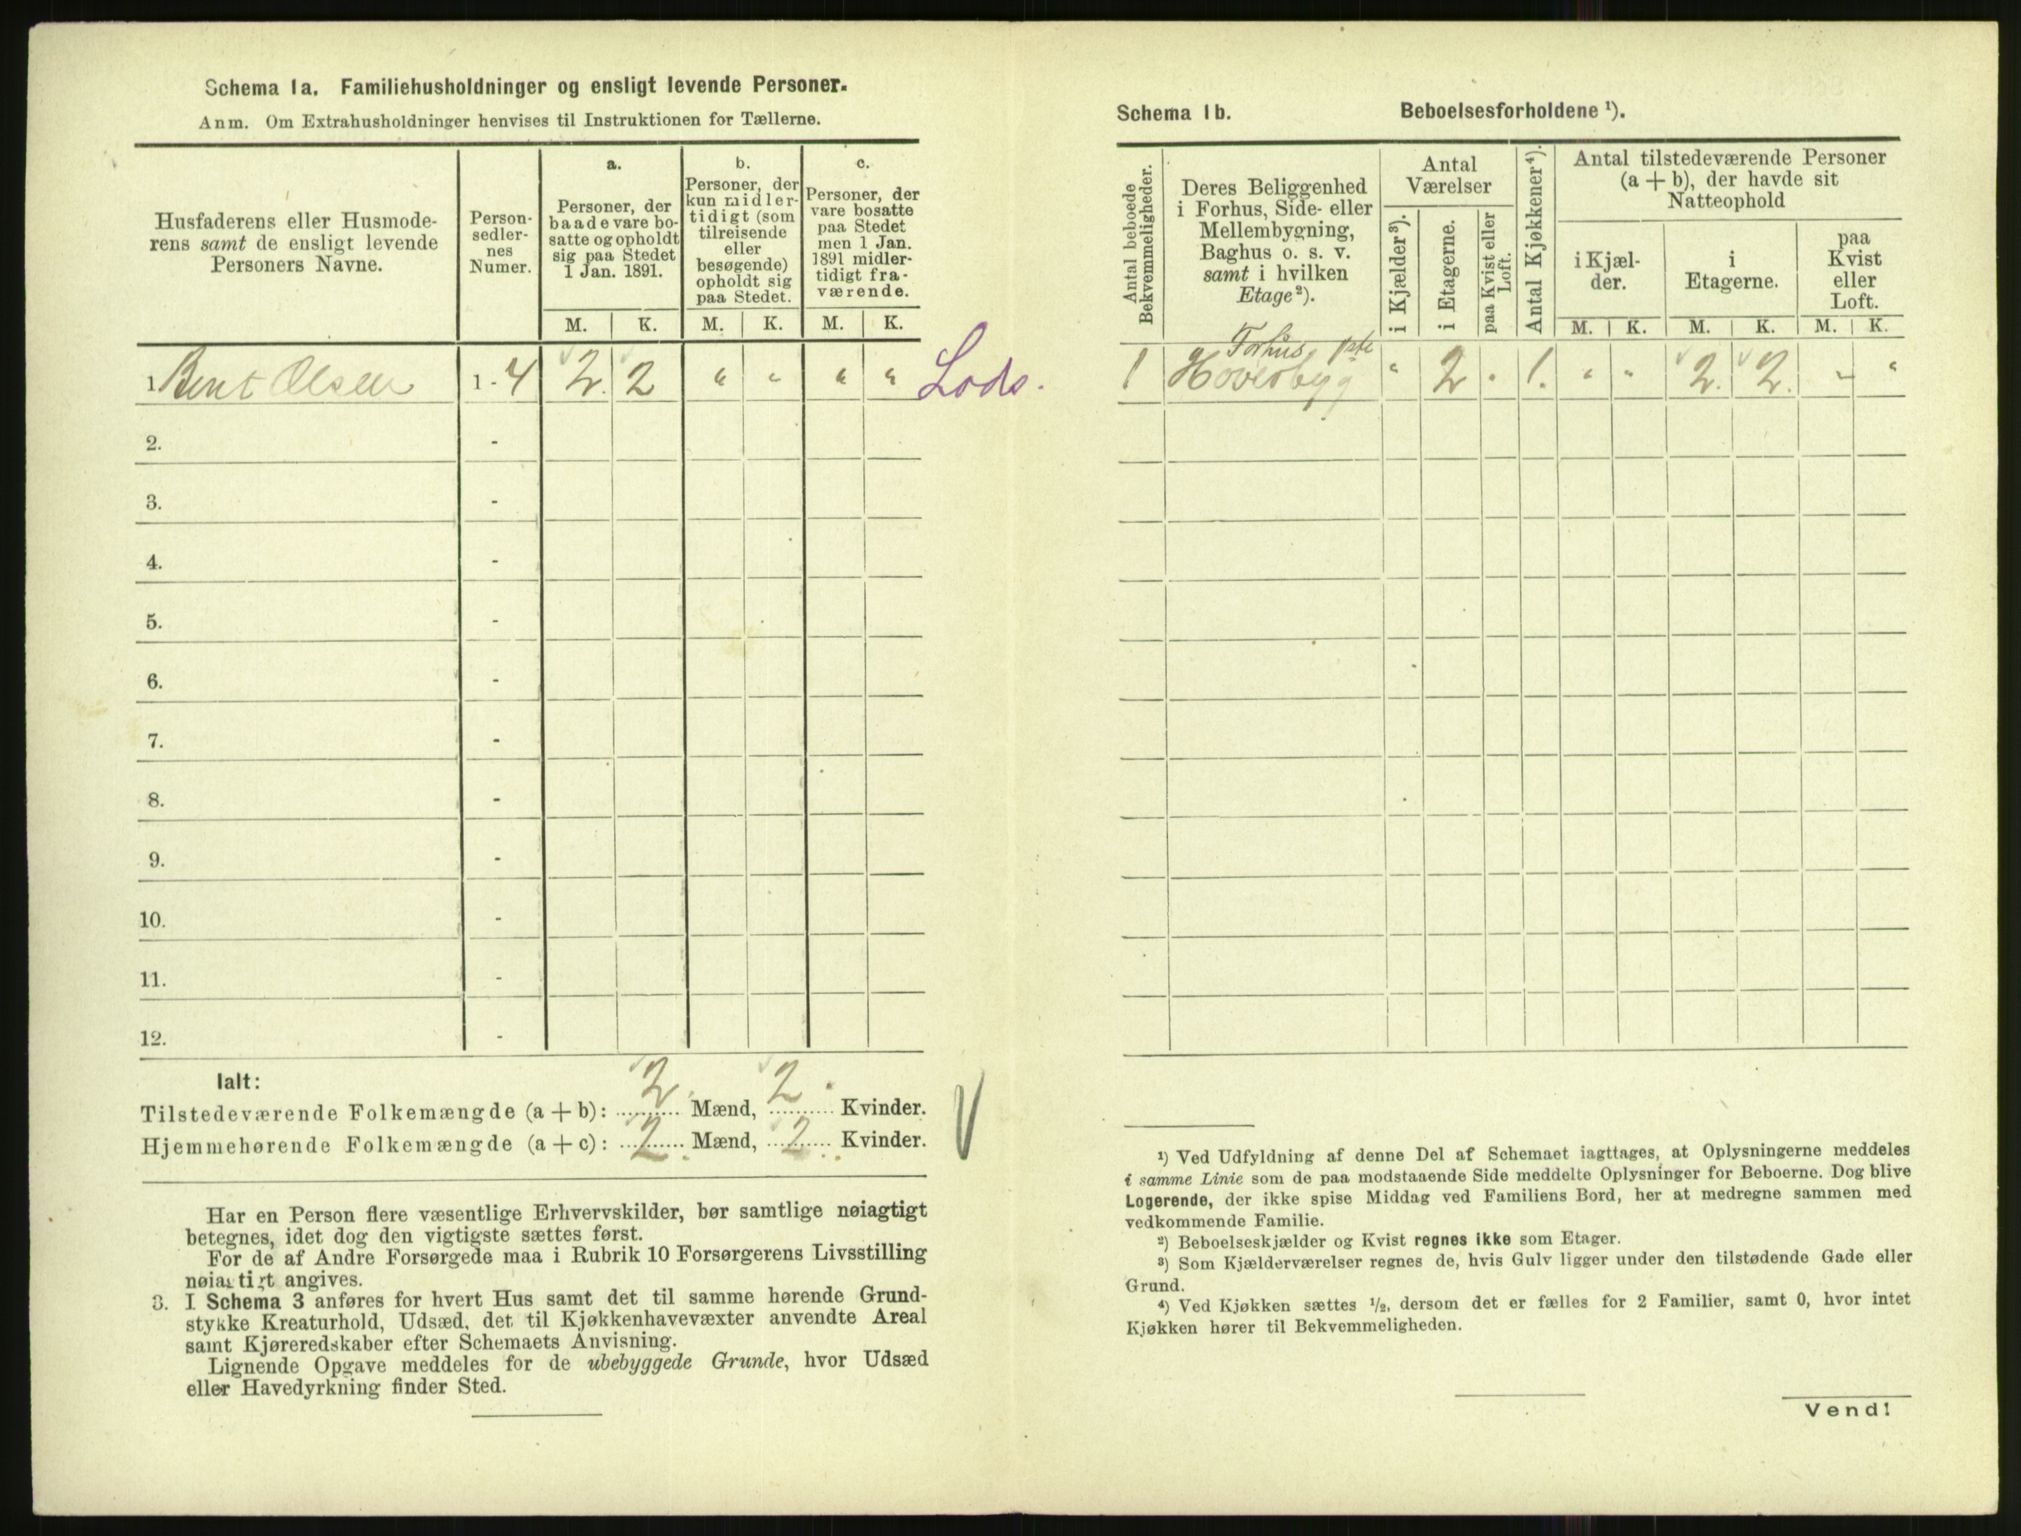 Schema 1a. Familiehusholdninger og ensligt levende Personer.
Anm. Om Extrahusholdninger henvises til Instruktionen for Tællerne.
Husfaderens eller Husmode-
rens samt de ensligt levende
Personers Navne.
Person-
sedler-
nes
Numer.
a.
Personer, der
baade vare bo-
satte og opholdt
sig paa Stedet
1 Jan. 1891.
b.
Personer, der
kun midler-
tidigt (som
tilreisende
eller
besøgende)
opholdt sig
paa Stedet.
c.
Personer, der
vare bosatte
paa Stedet
men 1 Jan.
1891 midler-
tidigt fra-
værende.
M. K. M. K. M. K.
1 Bent Olsen 1-4 2. 2 " " " " Lods.
2. -
3. -
4. -
5. -
6. -
7. -
8. -
9. -
10. -
11. -
12. -
Ialt:
Tilstedeværende Folkemængde (a + b): 2 Mænd, 2 Kvinder.
Hjemmehørende Folkemængde (a + c): 2 Mænd, 2 Kvinder.
Har en Person flere væsentlige Erhvervskilder, bør samtlige nøiagtigt
betegnes, idet dog den vigtigste sættes først.
For de af Andre Forsørgede maa i Rubrik 10 Forsørgerens Livsstilling
nøiagtigt angives.
3. I Schema 3 anføres for hvert Hus samt det til samme hørende Grund-
stykke Kreaturhold, Udsæd, det til Kjøkkenhavevæxter anvendte Areal
samt Kjøreredskaber efter Schemaets Anvisning.
Lignende Opgave meddeles for de ubebyggede Grunde, hvor Udsæd
eller Havedyrkning finder Sted.
Schema 1b. Beboelsesforholdene ¹).
Antal beboede
Bekvemmeligheder.
Deres Beliggenhed
i Forhus, Side- eller
Mellembygning,
Baghus o. s. v.
samt i hvilken
Etage²).
Antal
Værelser
i Kjælder³).
i Etagerne.
paa Kvist eller
Loft.
Antal Kjøkkener⁴).
Antal tilstedeværende Personer
(a + b), der havde sit
Natteophold
i Kjæl-
der.
i
Etagerne.
paa
Kvist
eller
Loft.
M. K. M. K. M. K.
Forhus, 1ste
1 Hovedbyg " 2 " 1. " " 2. 2. " "
¹) Ved Udfyldning af denne Del af Schemaet iagttages, at Oplysningerne meddeles
i samme Linie som de paa modstaaende Side meddelte Oplysninger for Beboerne. Dog blive
Logerende, der ikke spise Middag ved Familiens Bord, her at medregne sammen med
vedkommende Familie.
²) Beboelseskjælder og Kvist regnes ikke som Etager.
³) Som Kjælderværelser regnes de, hvis Gulv ligger under den tilstødende Gade eller
Grund.
⁴) Ved Kjøkken sættes ½, dersom det er fælles for 2 Familier, samt 0, hvor intet
Kjøkken hører til Bekvemmeligheden.
Vend!